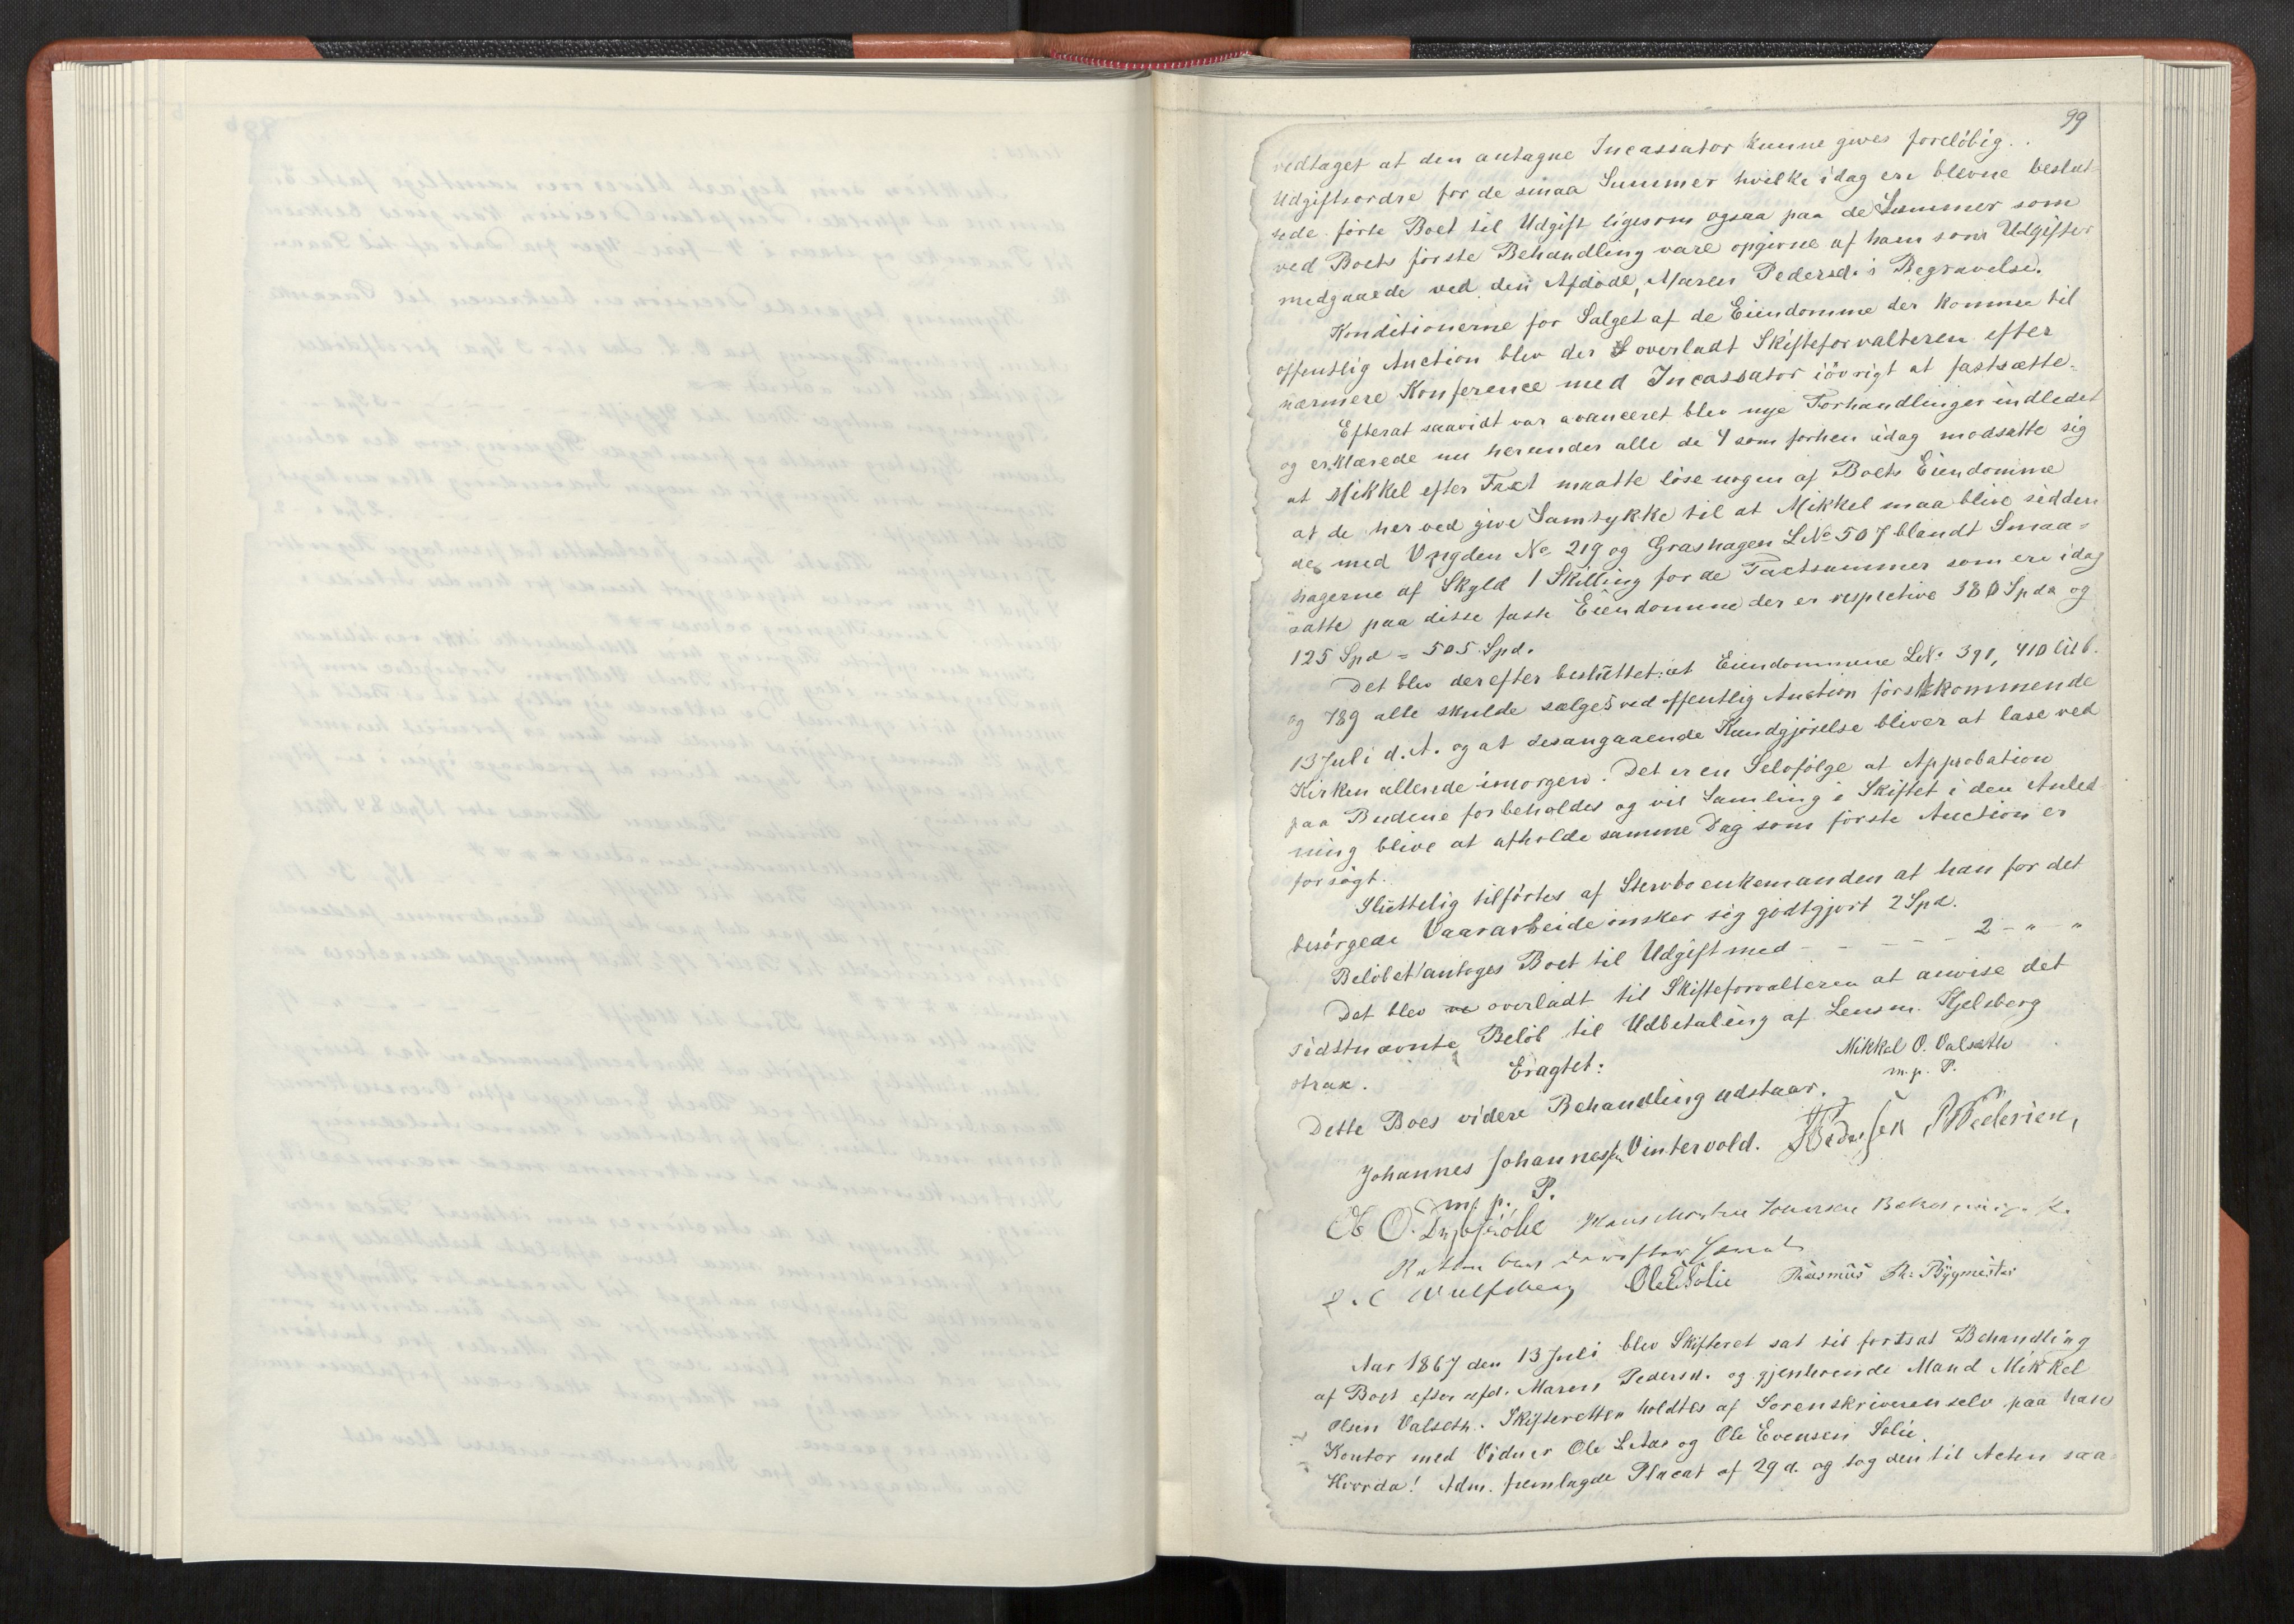 99
vedtaget at den antagne Incassator kunne gives foreløbig
Udgiftsordre for de smaa Summer hvilke idag ere blevne beslut-
tede førte Boet til Udgift ligesom ogsaa paa de Summer som
ved Boets første Behandling vare opgivne af ham som Udgifter
medgaaede ved den Afdøde, Maren Pedersd.s Begravelse.
Konditionerne for Salget af de Eiendomme der komme til
offentlig Auction blev der overladt Skifteforvalteren efter
nærmere Konference med Incassator iøvrigt at fastsætte.
Efterat saavidt var avanceret blev nye Forhandlinger indledet
og erklærede nu herunder alle de 4 som forhen idag modsatte sig
at Mikkel efter Taxt maatte løse nogen af Boets Eiendomme
at de herved give Samtykke til at Mikkel maa blive sidden
de med Vngden No 219 og Græshagen LNo 507 blandt Smaa-
hagerne af Skyld 1 Skilling for de Taxtsummer som ere idag
satte paa disse faste Eiendomme der er respective 380 Spd og
125 Spd = 505 Spd.
Det blev derefter besluttet: at Eiendommene LN: 391, 410 lit b.
og 789 alle skulde sælges ved offentlig Auction førstkommende
13 Juli d. A. og at desangaaende Kundgjørelse bliver at læse ved
Kirken allerede imorgen. Det er en Selvfølge at Approbation
paa Budene forbeholdes og vil Samling i Skiftet i den Anled-
ning blive at afholde samme Dag som første Auction er
forsøgt.
Sluttelig tilførtes af Stervboenkemanden at han for det
besørgede Vaararbeide ønsker sig godtgjort 2 Spd.
Beløbet antoges Boet til Udgift med - - - - - 2 - " - "
Det blev overladt til Skifteforvalteren at anvise det
sidstnævnte Beløb til Udbetaling af Lensm. Kjelsberg
strax.
Eragtet:
Mikkel O. Valsæth
m. p. P.
Dette Boes videre Behandling udstaar.
Johannes Johannessen Vintervold. Pedersen,
m. p. P.
Ole E Solie Rasmus Bygmester
Aar 1867 den 13 Juli blev Skifteret sat til fortsat Behandling
af Boet efter afd. Maren Pedersd. og gjenlevende Mand Mikkel
Olsen Valseth. Skifteretten holdtes af Sorenskriveren selv paa hans
Kontor med Vidner Ole Letas og Ole Evensen Solie.
Hvorda! Adm. fremlagde Placat af 29 d. og tog den til Acten saa-